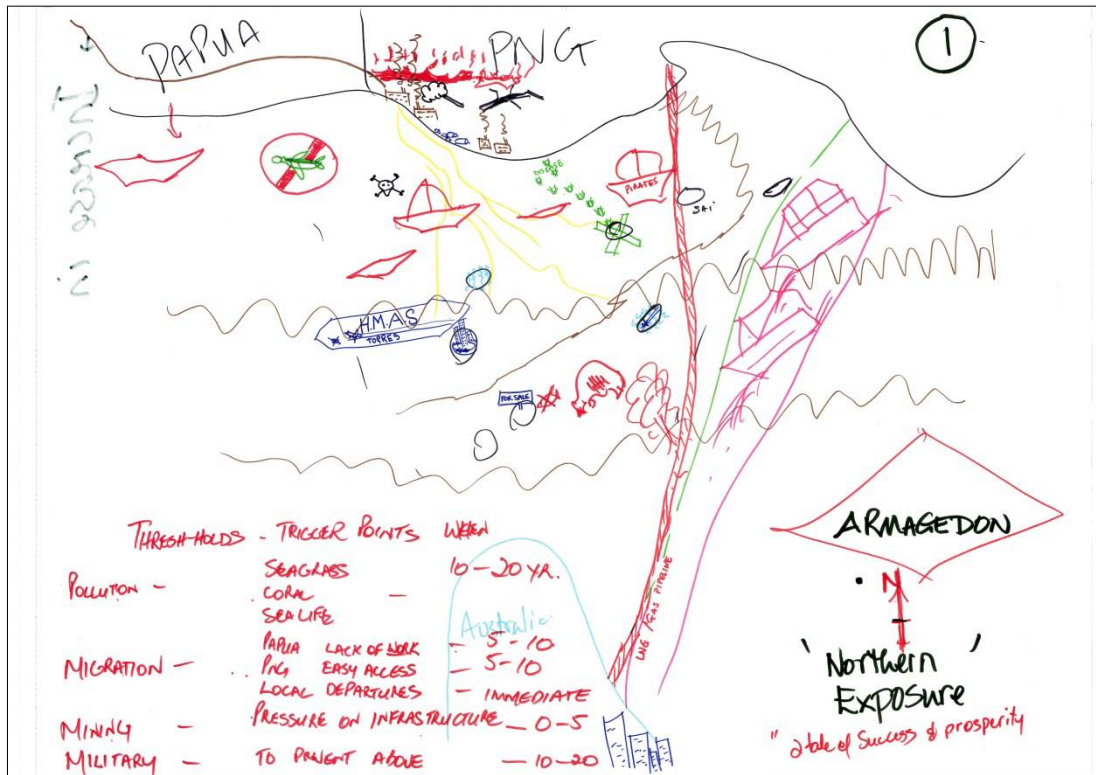 PAPUA
PNG
1
Increase in
PIRATES
SAI
H.M.A.S
TORRES
FOR SALE
LNG / GAS PIPELINE
ARMAGEDON
N
'Northern Exposure'
"a tale of Success & prosperity
Australia
THRESH-HOLDS - TRIGGER POINTS WHEN
POLLUTION - SEAGRASS 10-20 YR.
CORAL -
SEALIFE
MIGRATION - PAPUA LACK OF WORK - 5-10
PNG EASY ACCESS - 5-10
LOCAL DEPARTURES - IMMEDIATE
MINING - PRESSURE ON INFRASTRUCTURE - 0-5
MILITARY - TO PREVENT ABOVE - 10-20